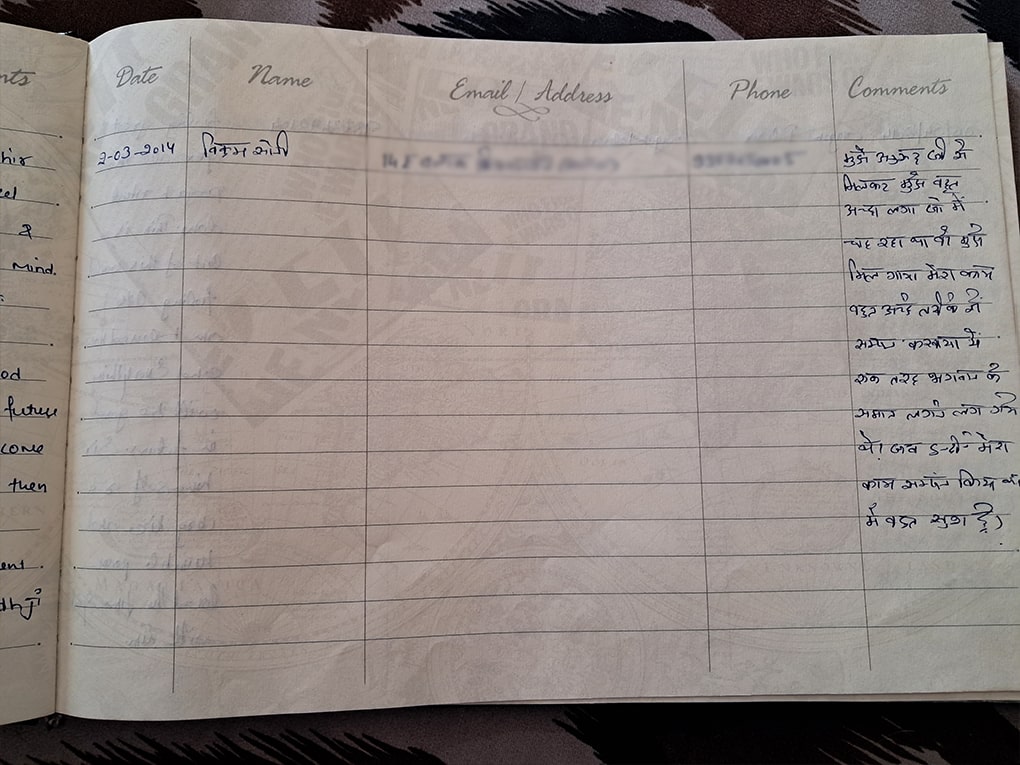 nts Date Name Email / Address Phone Comments
2-03-2014 विक्रम सोनी मुझे जी से
hir
मिलकर मुझे बहुत
cel
अच्छा लगा जो में
&
चाह रहा था वो मुझे
mind.
मिल गया मेरा काम
बहुत अच्छे तरीके से
सम्पन्न करवाया में
od
एक तरह भगवान के
future
समान लगने लग गये
come
थे। जब इन्होंने मेरा
then
काम सम्पन्न किया
में बहुत खुश हूँ।
ent.
dhji